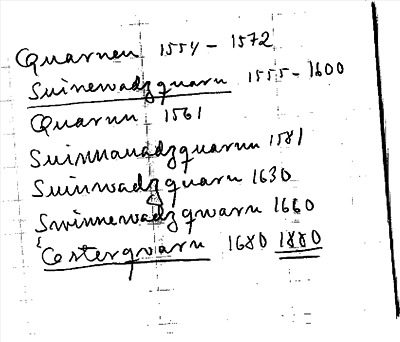 Quarnen 1554 - 1572
Suinewadzquarn 1555 - 1600
Quarnn 1561
Suinmanadzquarnn 1581
Suinwadzquarn 1630
Swinnewadzqwarn 1660
Cesterqvarn 1680 1880